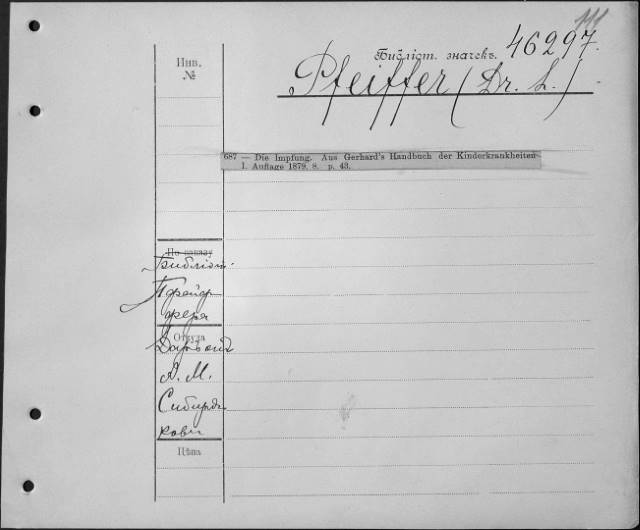 111
Библіот. значекъ. 46297.
Инв.
№
Pfeiffer (Dr. L.)
687 — Die Impfung. Aus Gerhard's Handbuch der Kinderkrankheiten
1. Auflage 1879. 8. p. 43.
По заказу
Библіот.
Пфейф-
фера
Откуда
Даръ отъ
А. М.
Сибиря-
кова
Цѣна